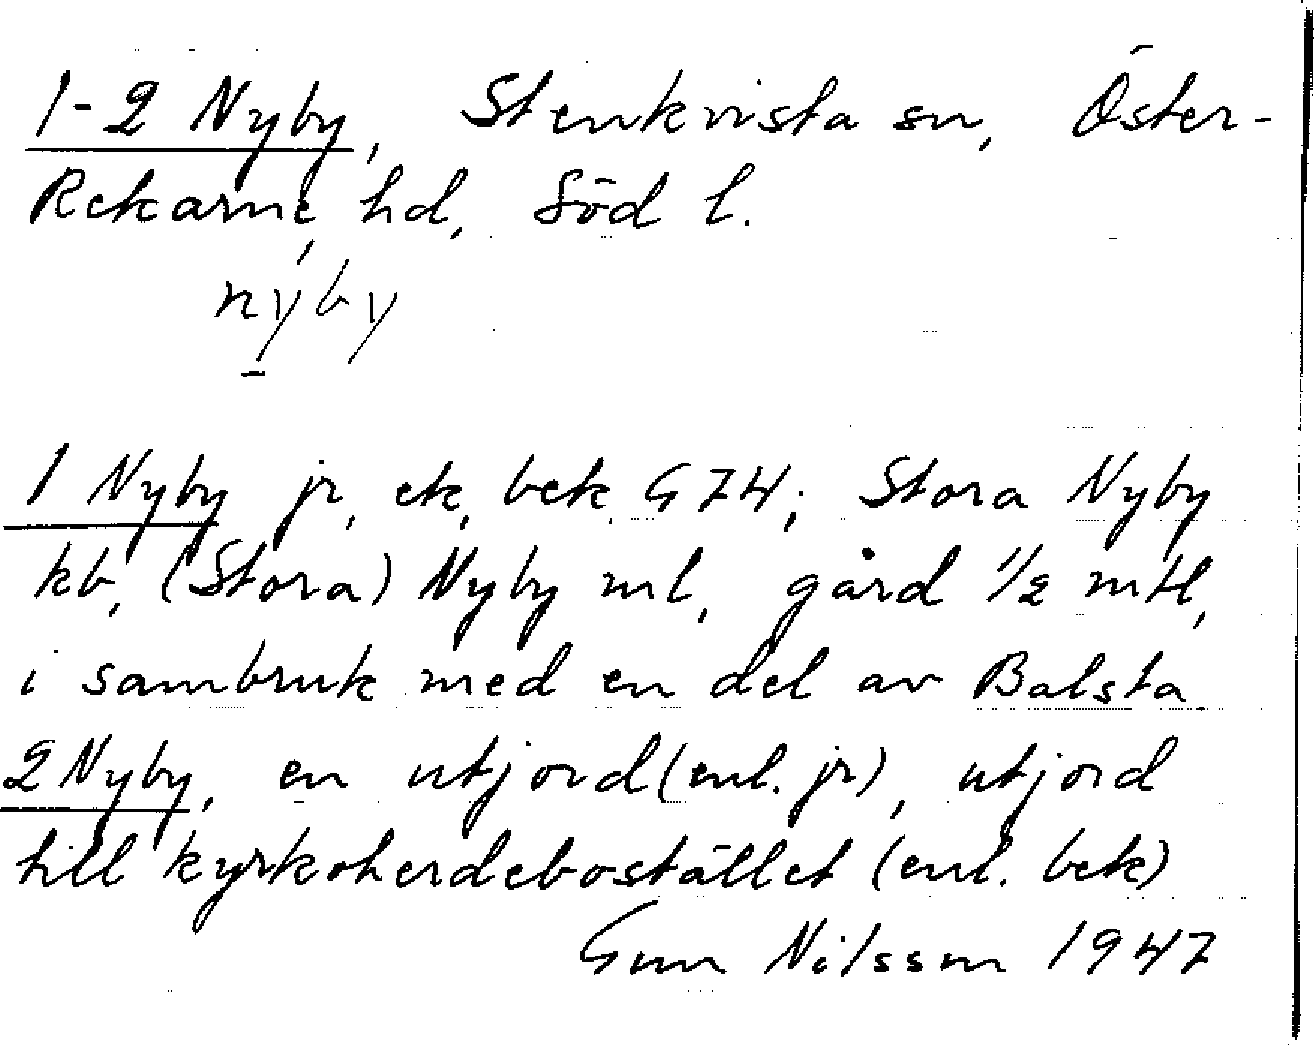 1-2 Nyby, Stenkvista sn, Öster-
Rekarne, hd, Söd l.
nyby
1 Nyby jr, ek, bek G74; Stora Nyby
kb, (Stora) Nyby ml, gård 1/2 mtl,
i sambruk med en del av Balsta
2 Nyby, en utjord (enl. jr), utjord
till kyrkoherdebostället (enl. bek)
Gun Nilsson 1947